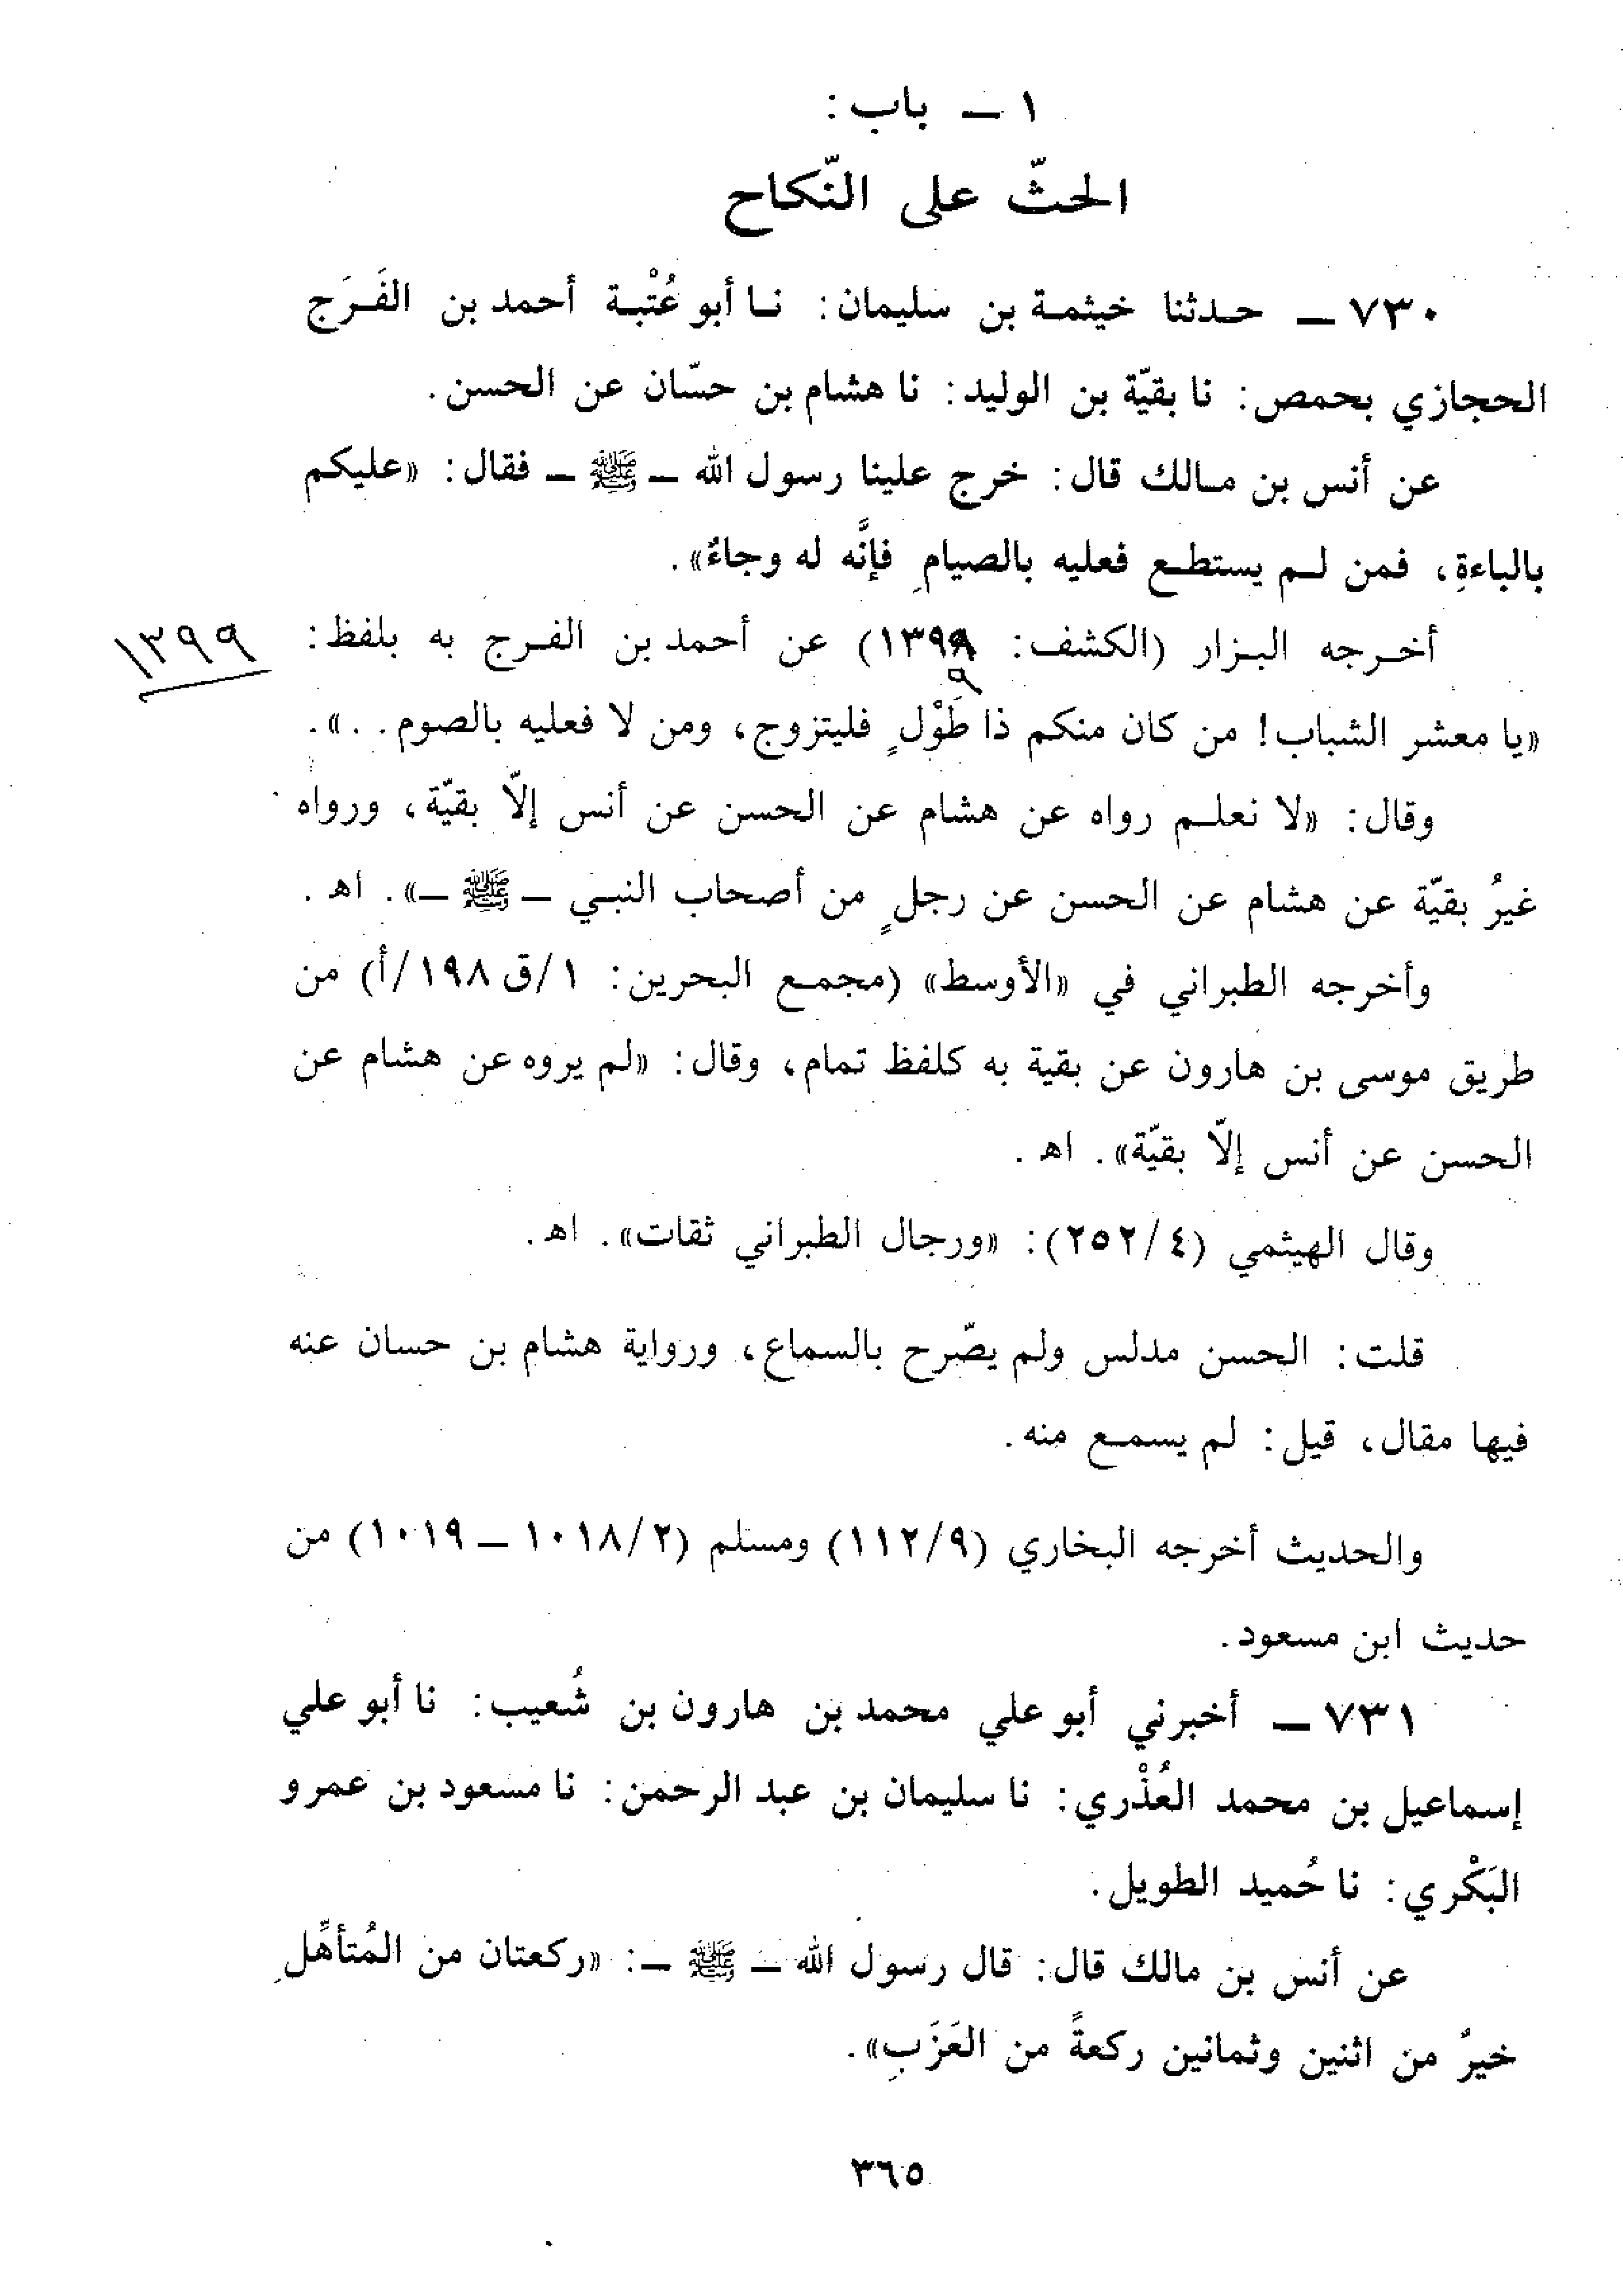 ١ ــ باب :
الحثّ على النّكاح
٧٣٠ ــ حدثنا خيثمة بن سليمان: نا أبو عُتْبة أحمد بن الفَرَج
الحجازي بحمص: نا بقيّة بن الوليد: نا هشام بن حسّان عن الحسن.
عن أنس بن مالك قال: خرج علينا رسول الله ــ ﷺ ــ فقال: «عليكم
بالباءةِ، فمن لم يستطع فعليه بالصيامِ فإنَّه له وجاءٌ».
أخرجه البزار (الكشف: ١٣٩٩) عن أحمد بن الفرج به بلفظ:
١٣٩٩
٩
«يا معشر الشباب! من كان منكم ذا طَوْلٍ فليتزوج، ومن لا فعليه بالصوم. . .».
وقال: «لا نعلم رواه عن هشام عن الحسن عن أنس إلاّ بقيّة، ورواه
غيرُ بقيّة عن هشام عن الحسن عن رجلٍ من أصحاب النبي ــ ﷺ ــ». اهـ.
وأخرجه الطبراني في «الأوسط» (مجمع البحرين: ١/ق ١٩٨/أ) من
طريق موسى بن هارون عن بقية به كلفظ تمام، وقال: «لم يروه عن هشام عن
الحسن عن أنس إلاّ بقيّة». اهـ.
وقال الهيثمي (٤/ ٢٥٢): «ورجال الطبراني ثقات». اهـ.
قلت: الحسن مدلس ولم يصّرح بالسماع، ورواية هشام بن حسان عنه
فيها مقال، قيل: لم يسمع منه.
والحديث أخرجه البخاري (٩/ ١١٢) ومسلم (٢/ ١٠١٨ ــ ١٠١٩) من
حديث ابن مسعود.
٧٣١ ــ أخبرني أبو علي محمد بن هارون بن شُعيب: نا أبو علي
إسماعيل بن محمد العُذْري: نا سليمان بن عبد الرحمن: نا مسعود بن عمرو
البَكْري: نا حُميد الطويل.
عن أنس بن مالك قال: قال رسول الله ــ ﷺ ــ: «ركعتان من المُتأهِّلِ
خيرٌ من اثنين وثمانين ركعةً من العَزَبِ».
٣٦٥